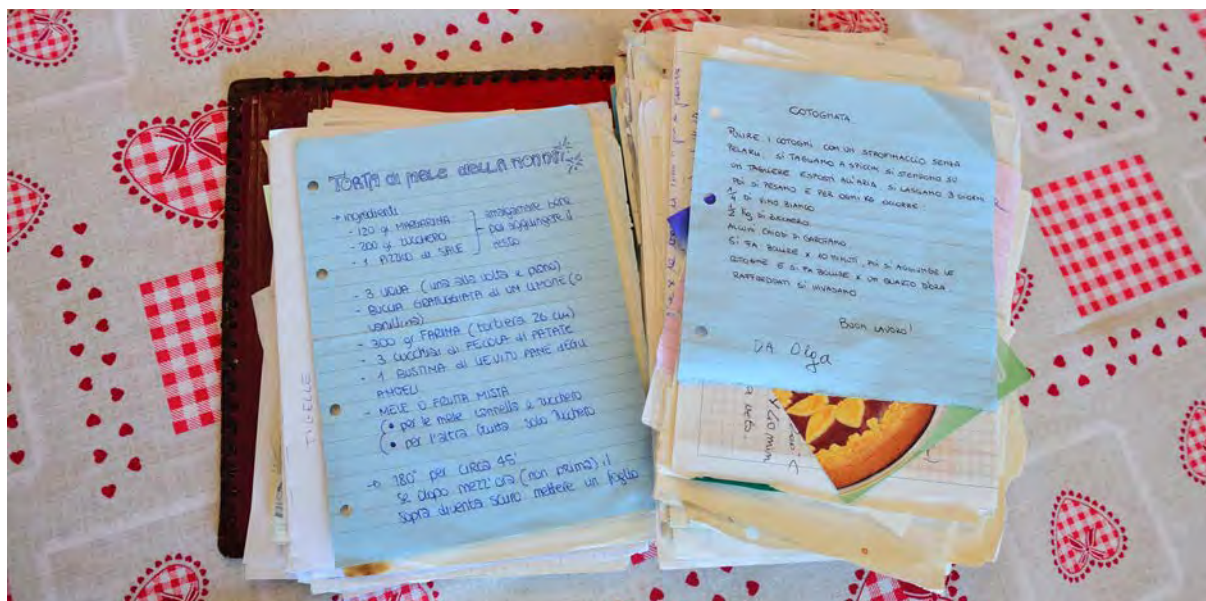 TORTA di MELE DELLA NONNA
→ ingredienti
- 120 gr MARGARINA
- 200 gr ZUCCHERO
- 1 PIZZICO di SALE
amalgamare bene
poi aggiungere il
resto
- 3 UOVA (una alla volta e piano)
- BUCCIA GRATUGGIATA di UN LIMONE (o
vanillina)
- 300 gr FARINA (tortiera 26 cm)
- 3 CUCCHIAI di FECOLA di PATATE
- 1 BUSTINA di LIEVITO PANE DEGLI
ANGELI
- MELE O FRUTTA MISTA
(• per le mele cannella e zucchero
(• per l'altra frutta solo zucchero
→ 180° per circa 45'
se dopo mezz'ora (non prima) il
sopra diventa scuro mettere un foglio
TIGELLE
COTOGNATA
PULIRE I COTOGNI CON UN STROFINACCIO SENZA
PELARLI, SI TAGLIANO A SPICCHI SI STENDONO SU
UN TAGLIERE ESPOSTI ALL'ARIA SI LASCIANO 3 GIORNI
POI SI PESANO E PER OGNI KG OCCORRE:
1/4 DI VINO BIANCO
1/2 KG DI ZUCCHERO
ALCUNI CHIODI DI GAROFANO
SI FA BOLLIRE X 10 MINUTI, POI SI AGGIUNGE LE
COTOGNE E SI FA BOLLIRE X UN QUARTO D'ORA.
RAFFREDDATI SI INVASANO
BUON LAVORO!
DA Olga